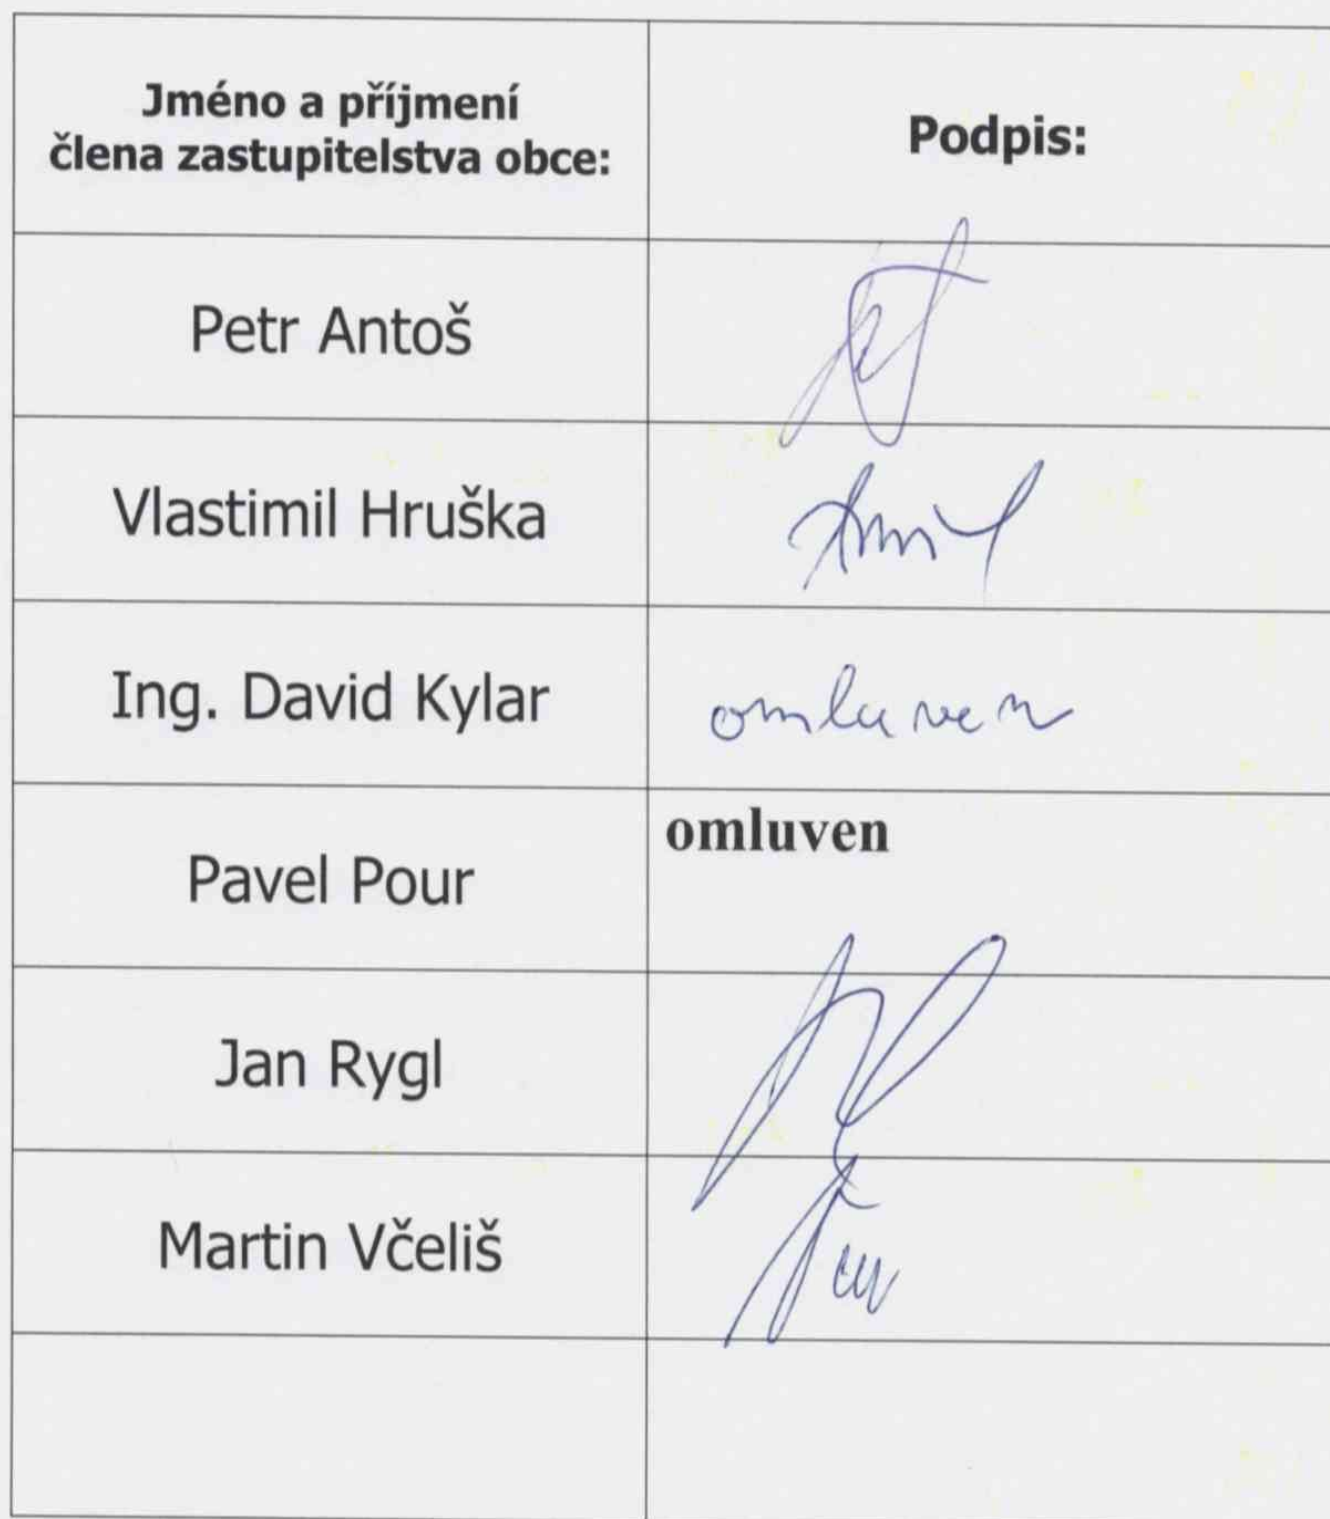 Jméno a příjmení
člena zastupitelstva obce:
Podpis:
Petr Antoš
Vlastimil Hruška
Ing. David Kylar
omluven
Pavel Pour
omluven
Jan Rygl
Martin Včeliš